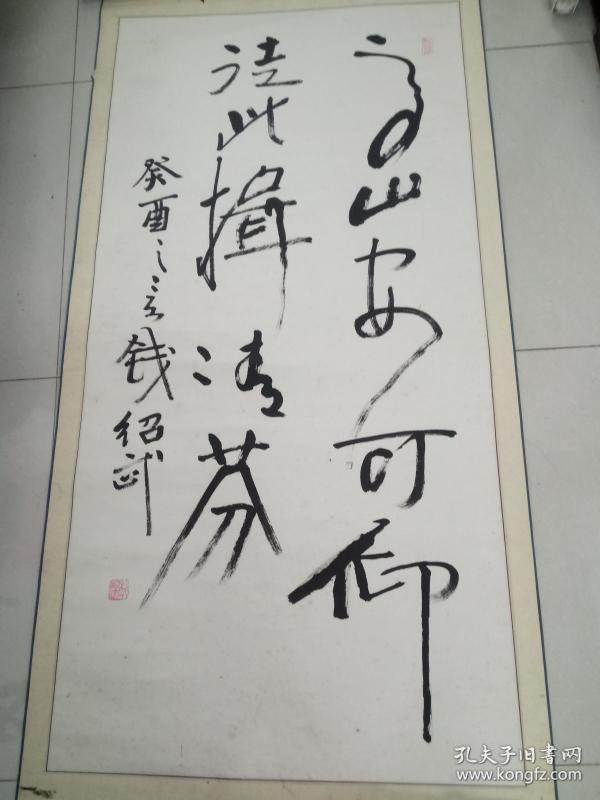 高山安可仰
徒此揖清芬
癸酉之钱绍武
孔夫子旧书网
www.kongfz.com